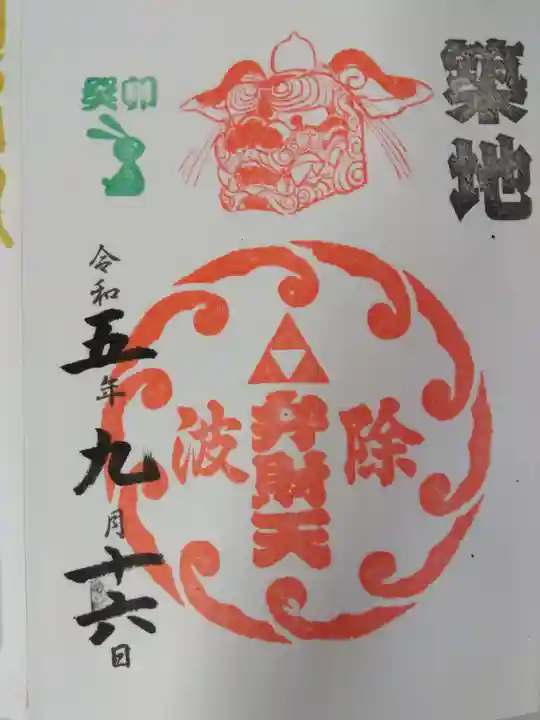 築地
癸卯
弁財天
波除
令和五年九月十六日